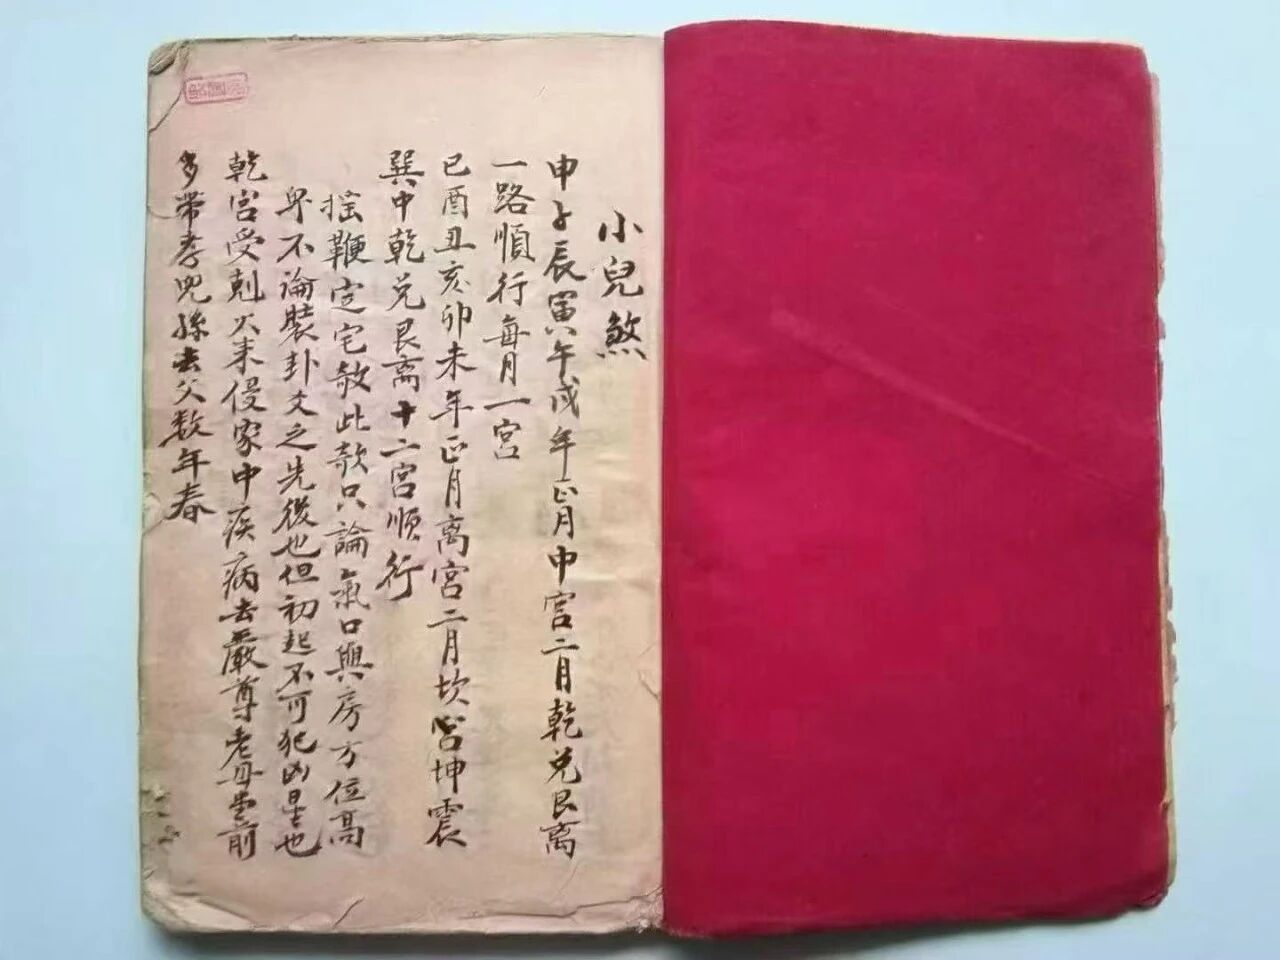 小兒煞
申子辰寅午戌年正月中宮二月乾兌艮离
一路順行每月一宮
巳酉丑亥卯未年正月离宮二月坎宮坤震
巽中乾兌艮离十二宮順行
摇鞭定宅敨此款只論氣口與房方位高
卑不論裝卦爻之先後也但初起不可犯凶星也
乾宮受剋火来侵家中疾病去嚴尊老母堂前
多带孝兜孫去父数年春